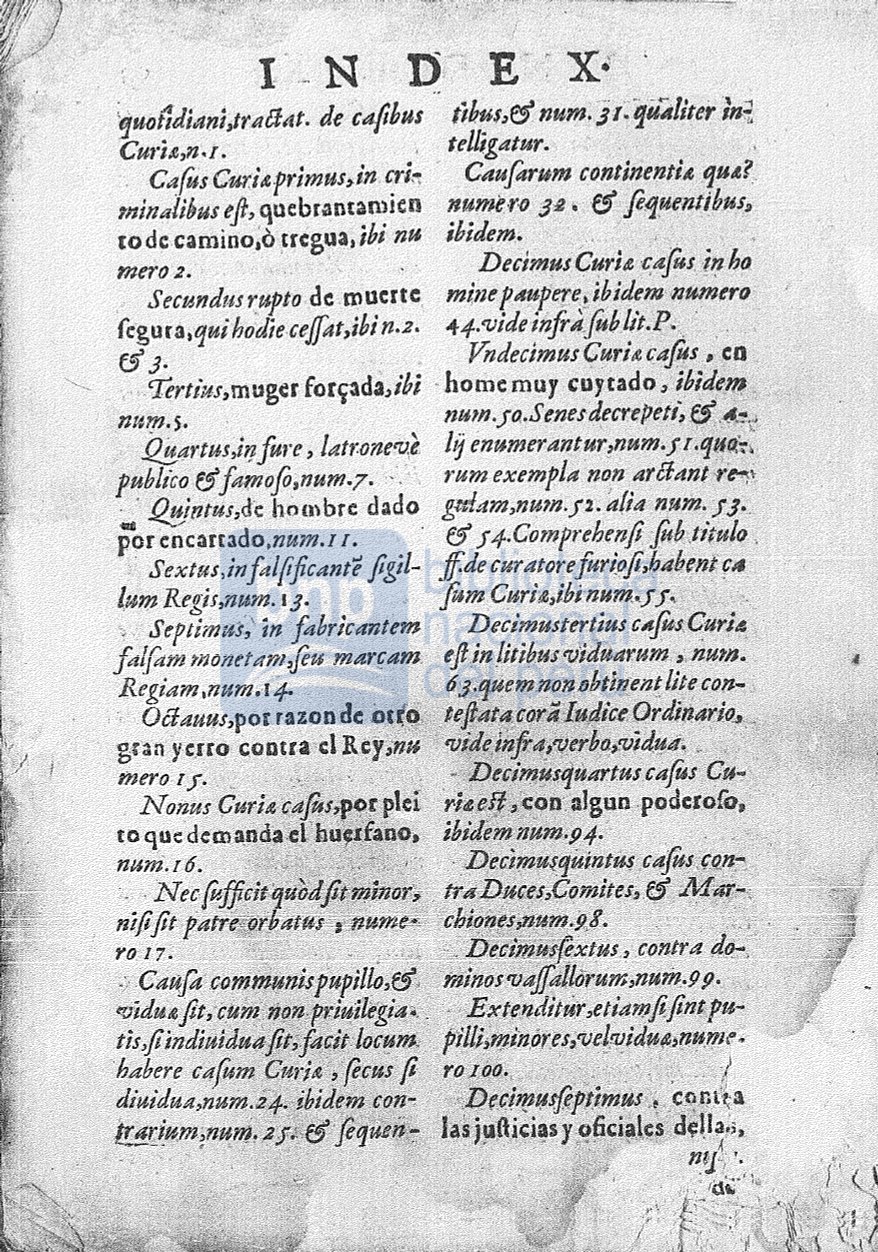 INDEX.
quotidiani, tractat. de casibus
Curiæ, n.1.
Casus Curiæ primus, in cri-
minalibus est, quebrantamien
to de camino, ò tregua, ibi nu
mero 2.
Secundus rupto de muerte
segura, qui hodie cessat, ibi n.2.
& 3.
Tertius, muger forçada, ibi
num.5.
Quartus, in fure, latronevè
publico & famoso, num.7.
Quintus, de hombre dado
por encartado, num.11.
Sextus, in falsificantẽ sigil-
lum Regis, num.13.
Septimus, in fabricantem
falsam monetam, seu marcam
Regiam, num.14.
Octauus, por razon de otro
gran yerro contra el Rey, nu
mero 15.
Nonus Curiæ casus, por plei
to que demanda el huerfano,
num.16.
Nec sufficit quòd sit minor,
nisi sit patre orbatus, nume-
ro 17.
Causa communis pupillo, &
viduæ sit, cum non priuilegia-
tis, si indiuidua sit, facit locum
habere casum Curiæ, secus si
diuidua, num.24. ibidem con-
trarium, num.25. & sequen-
tibus, & num.31. qualiter in-
telligatur.
Causarum continentiæ quæ?
numero 32. & sequentibus,
ibidem.
Decimus Curiæ casus in ho
mine paupere, ibidem numero
44. vide infrà sub lit. P.
Vndecimus Curiæ casus, en
home muy cuytado, ibidem
num.50. Senes decrepeti, & a-
lij enumerantur, num.51. quo-
rum exempla non arctant re-
gulam, num.52. alia num.53.
& 54. Comprehensi sub titulo
ff. de curatore furiosi, habent ca
sum Curiæ, ibi num.55.
Decimustertius casus Curiæ
est in litibus viduarum, num.
63. quem non obtinent lite con-
testata corã Iudice Ordinario,
vide infra, verbo, vidua.
Decimusquartus casus Cu-
riæ est, con algun poderoso,
ibidem num.94.
Decimusquintus casus con-
tra Duces, Comites, & Mar-
chiones, num.98.
Decimussextus, contra do-
minos vassallorum, num.99.
Extenditur, etiam si sint pu-
pilli, minores, vel viduæ, nume-
ro 100.
Decimusseptimus, contra
las justicias y oficiales della,
de
bnp biblioteca
nacional
del perú